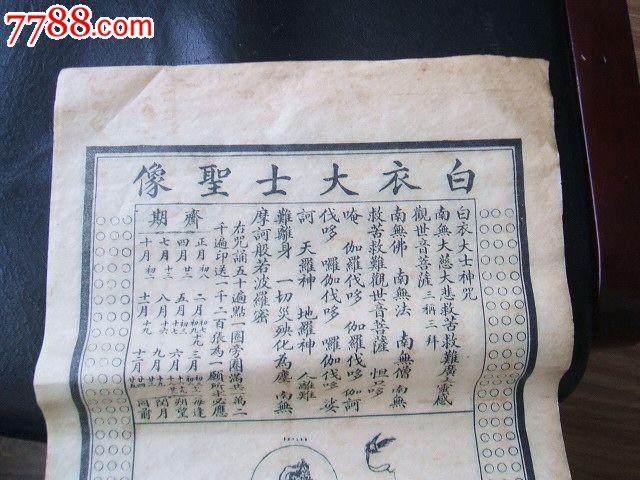 7788.com
白衣大士聖像
白衣大士神咒
南無大慈大悲救苦救難廣大靈感
觀世音菩薩 三稱三拜
南無佛 南無法 南無僧 南無
救苦救難觀世音菩薩 怛只哆
唵 伽羅伐哆 伽羅伐哆 伽訶
伐哆 囉伽伐哆 囉伽伐哆 娑
訶 天羅神 地羅神 人離難
難離身 一切災殃化為塵 南無
摩訶般若波羅密
右咒誦五十遍點一圈旁圈滿一萬二
千遍印送一千二百張為一願所求必應
齋期
正月初八 二月 三月 每逢
四月廿二 五月 六月 朔望
七月十三 八月十六 九月 閏月
十月初二 十一月十九 十二月 同前